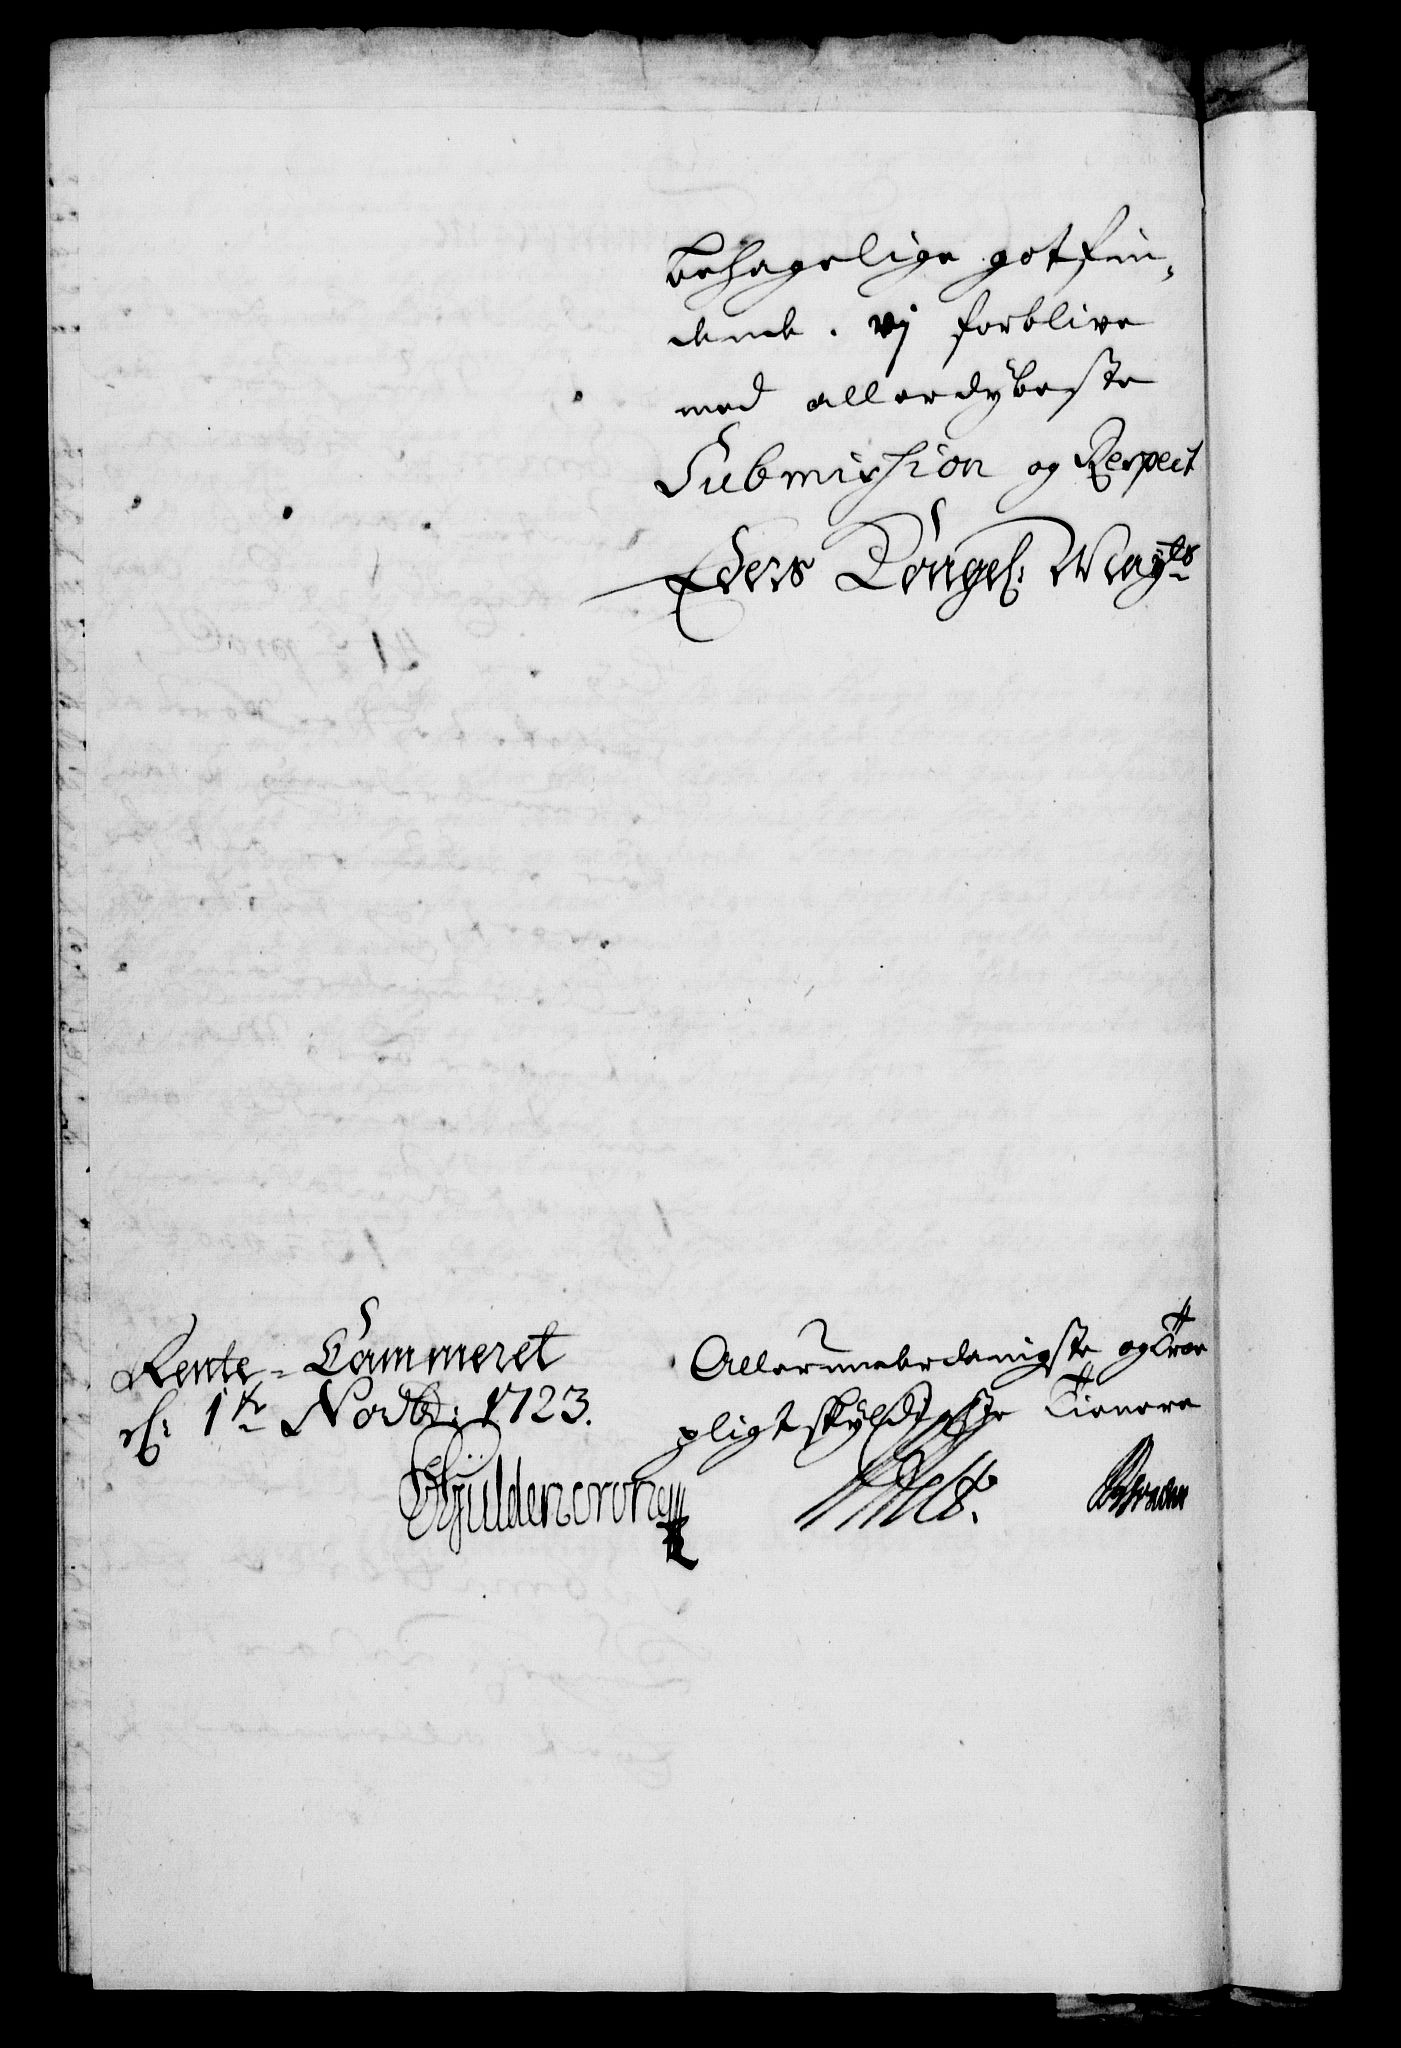 behagelige gotfin-
dende. vj forblive
med allerdybeste
Submission og Respect
Eders Kongel: May:ts
Rente-Cammeret
d: 1te Novb: 1723.
Allerunderdanigste og Troe
pligtskyldigste Tienere
Gÿldencrone